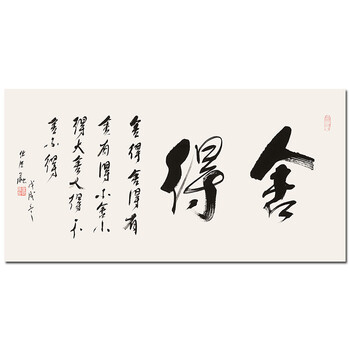 舍得
舍得舍得有
舍有得小舍小
得大舍大得不
舍不得
戊戌